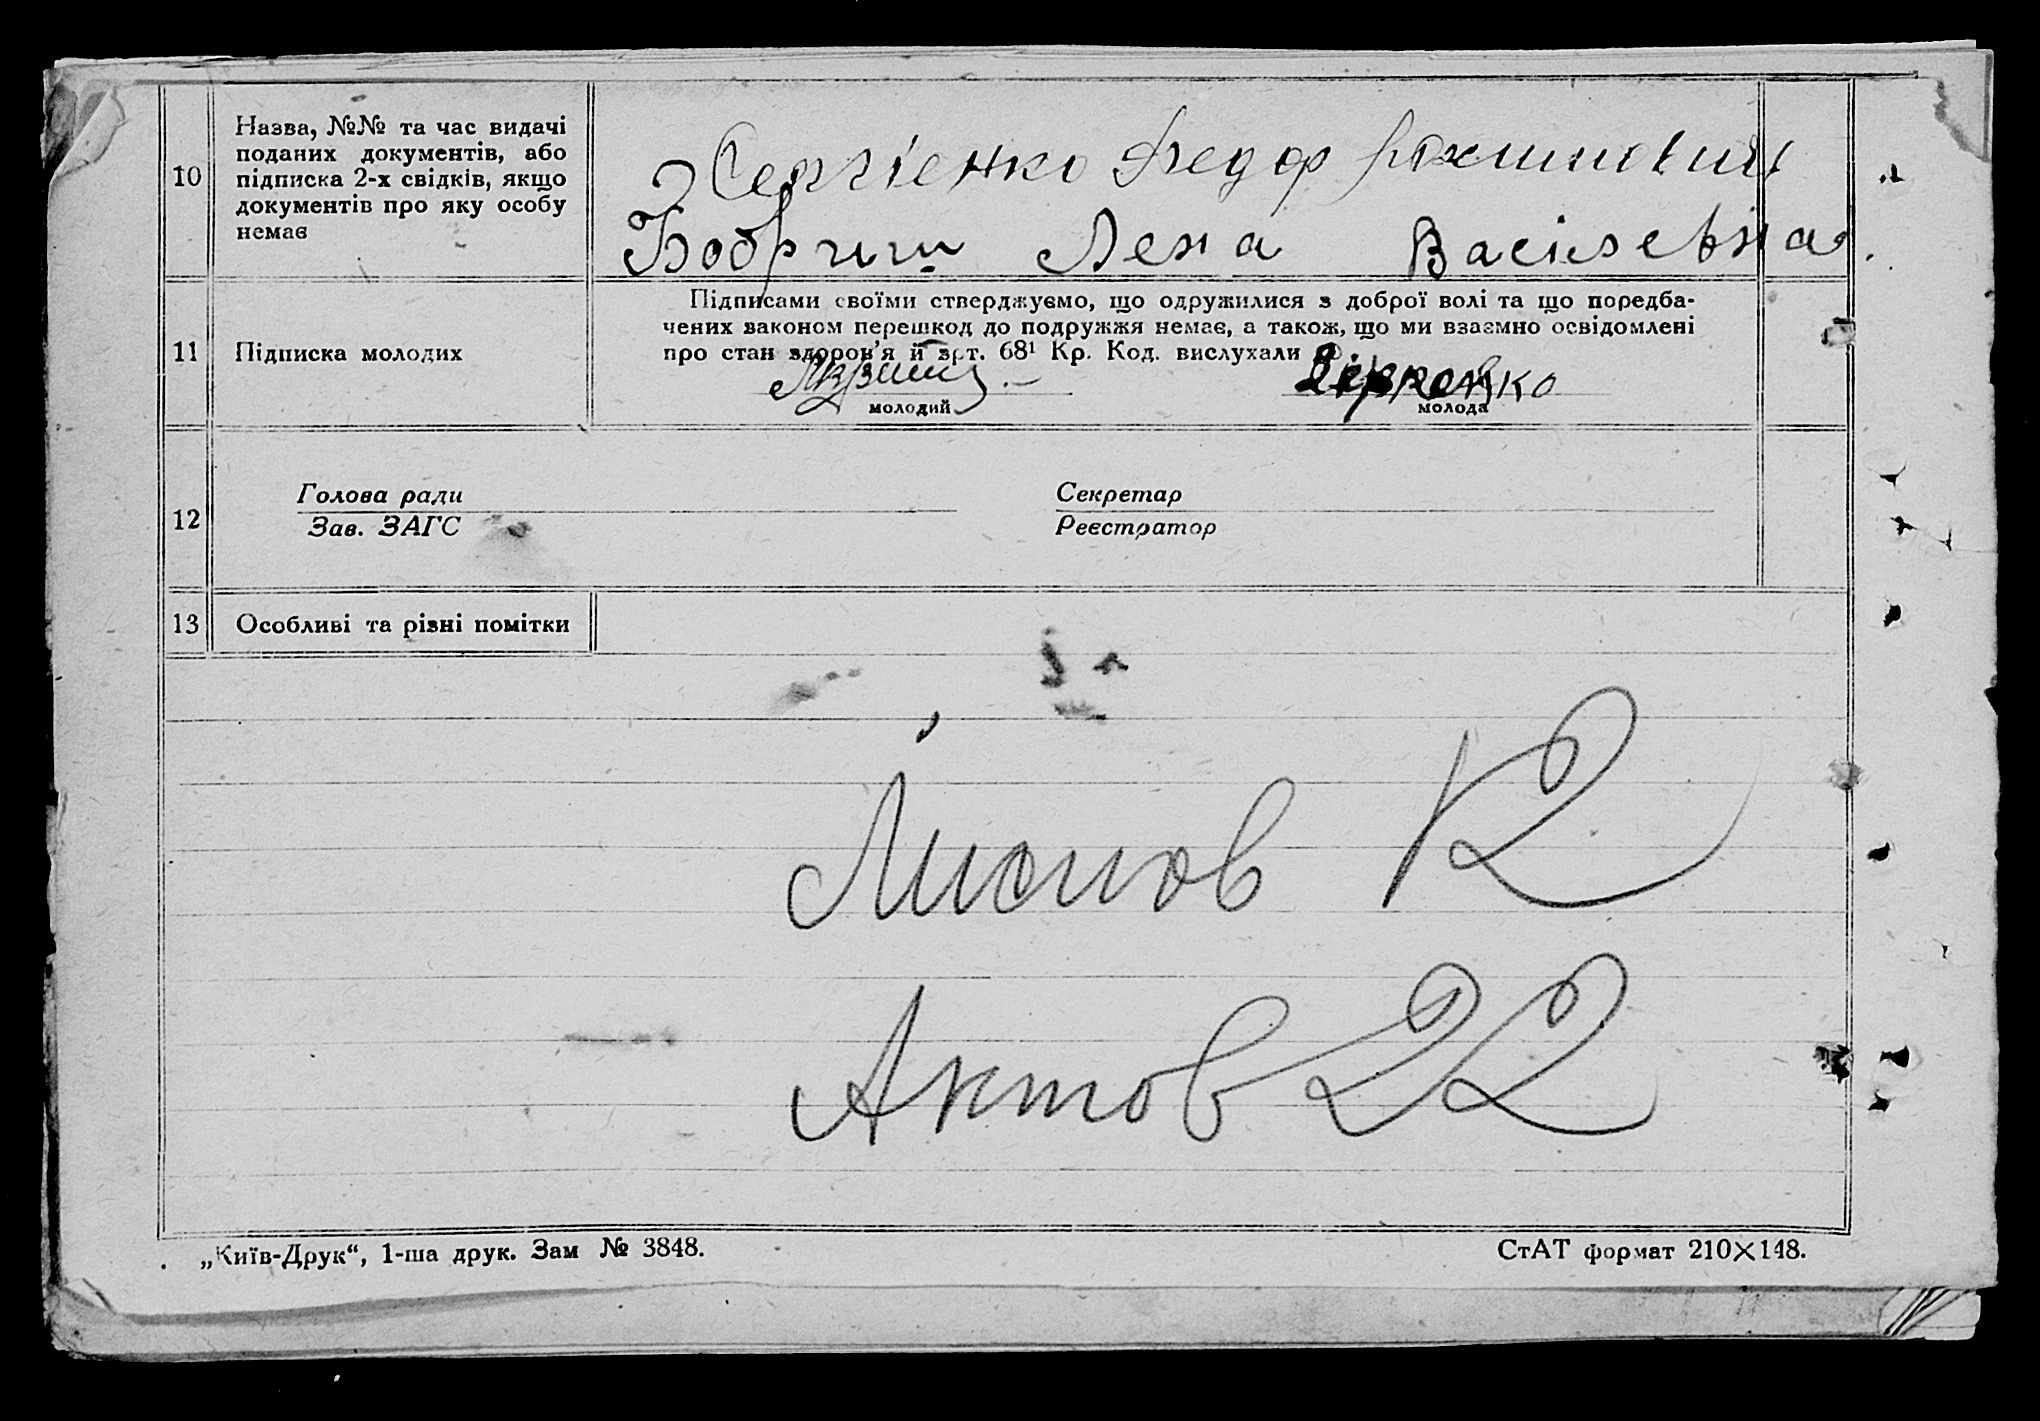 10
Назва, №№ та час видачі
поданих документів, або
підписка 2-х свідків, якщо
документів про яку особу
немає
Сергієнко Федор
Бобриш Лена Васілевна.
11
Підписка молодих
Підписами своїми стверджуємо, що одружилися з доброї волі та що передба-
чених законом перешкод до подружжя немає, а також, що ми взаємно освідомлені
про стан здоров'я й арт. 68¹ Кр. Код. вислухали
молодий
молода
12
Голова ради
Зав. ЗАГС
Секретар
Реєстратор
13
Особливі та різні помітки
Листов 12
Актов 22
„Київ-Друк“, 1-ша друк. Зам № 3848.
СтАТ формат 210×148.